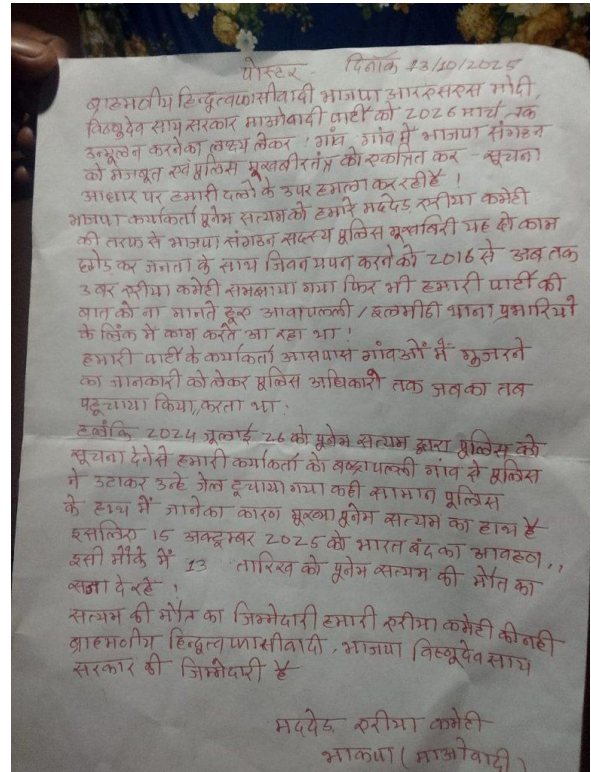 पोस्टर दिनाँक 13/10/2025
ब्राहमणीय हिन्दुत्वफासीवादी भाजपा आरएसएस मोदी,
विष्णुदेव साय सरकार माओवादी पार्टी को 2026 मार्च तक
उन्मूलन करनेका लक्ष्य लेकर ! गांव, गांव में भाजपा संगठन
को मजबूत एवं पुलिस मुखबीरतंत्र को एकत्रित कर - सूचना
आधार पर हमारी दलो के उपर हमला कर रही है !
भाजपा कर्याकर्ता पूनेम सत्यम को हमारे मददेड़ एरीया कमेटी
की तरफ से भाजपा संगठन सदस्य पुलिस मूखबिरी यह दो काम
छोड़ कर जनता के साथ जिवन यपन करने को 2016 से अब तक
3 बार एरीया कमेटी समझाया गया फिर भी हमारी पार्टी की
बात को ना मानते हूए आवापल्ली / इलमीडी थाना प्रभारियो
के लिंक में काम करते आ रहा था !
हमारी पार्टी के कर्याकर्ता आसपास गांवओं में गूजरने
का जानकारी को लेकर पुलिस अधिकारी तक जबका तब
पहूचाया किया, करता था.
हलांकि 2024 जूलाई 26 को पूनेम सत्यम द्वारा पुलिस को
सूचना देनेसे हमारी कर्याकर्ता को गांव से पुलिस
ने उटाकर उन्हे जेल हूचाया गया कही सामान पुलिस
के हाथ में जानेका कारण मूख्या पूनेम सत्यम का हाथ है
इसलिए 15 अक्टूम्बर 2025 को भारत बंद का आवहन,,
इसी मौके में 13 तारिख को पूनेम सत्यम की मौत का
सजा दे रहे !
सत्यम की मौत का जिम्मेदारी हमारी एरीया कमेटी की नही
ब्राहमणीय हिन्दुत्व फासीवादी, भाजपा विष्णूदेव साय
सरकार की जिम्मेदारी है
मददेड़ एरीया कमेटी
भाकपा (माओवादी)